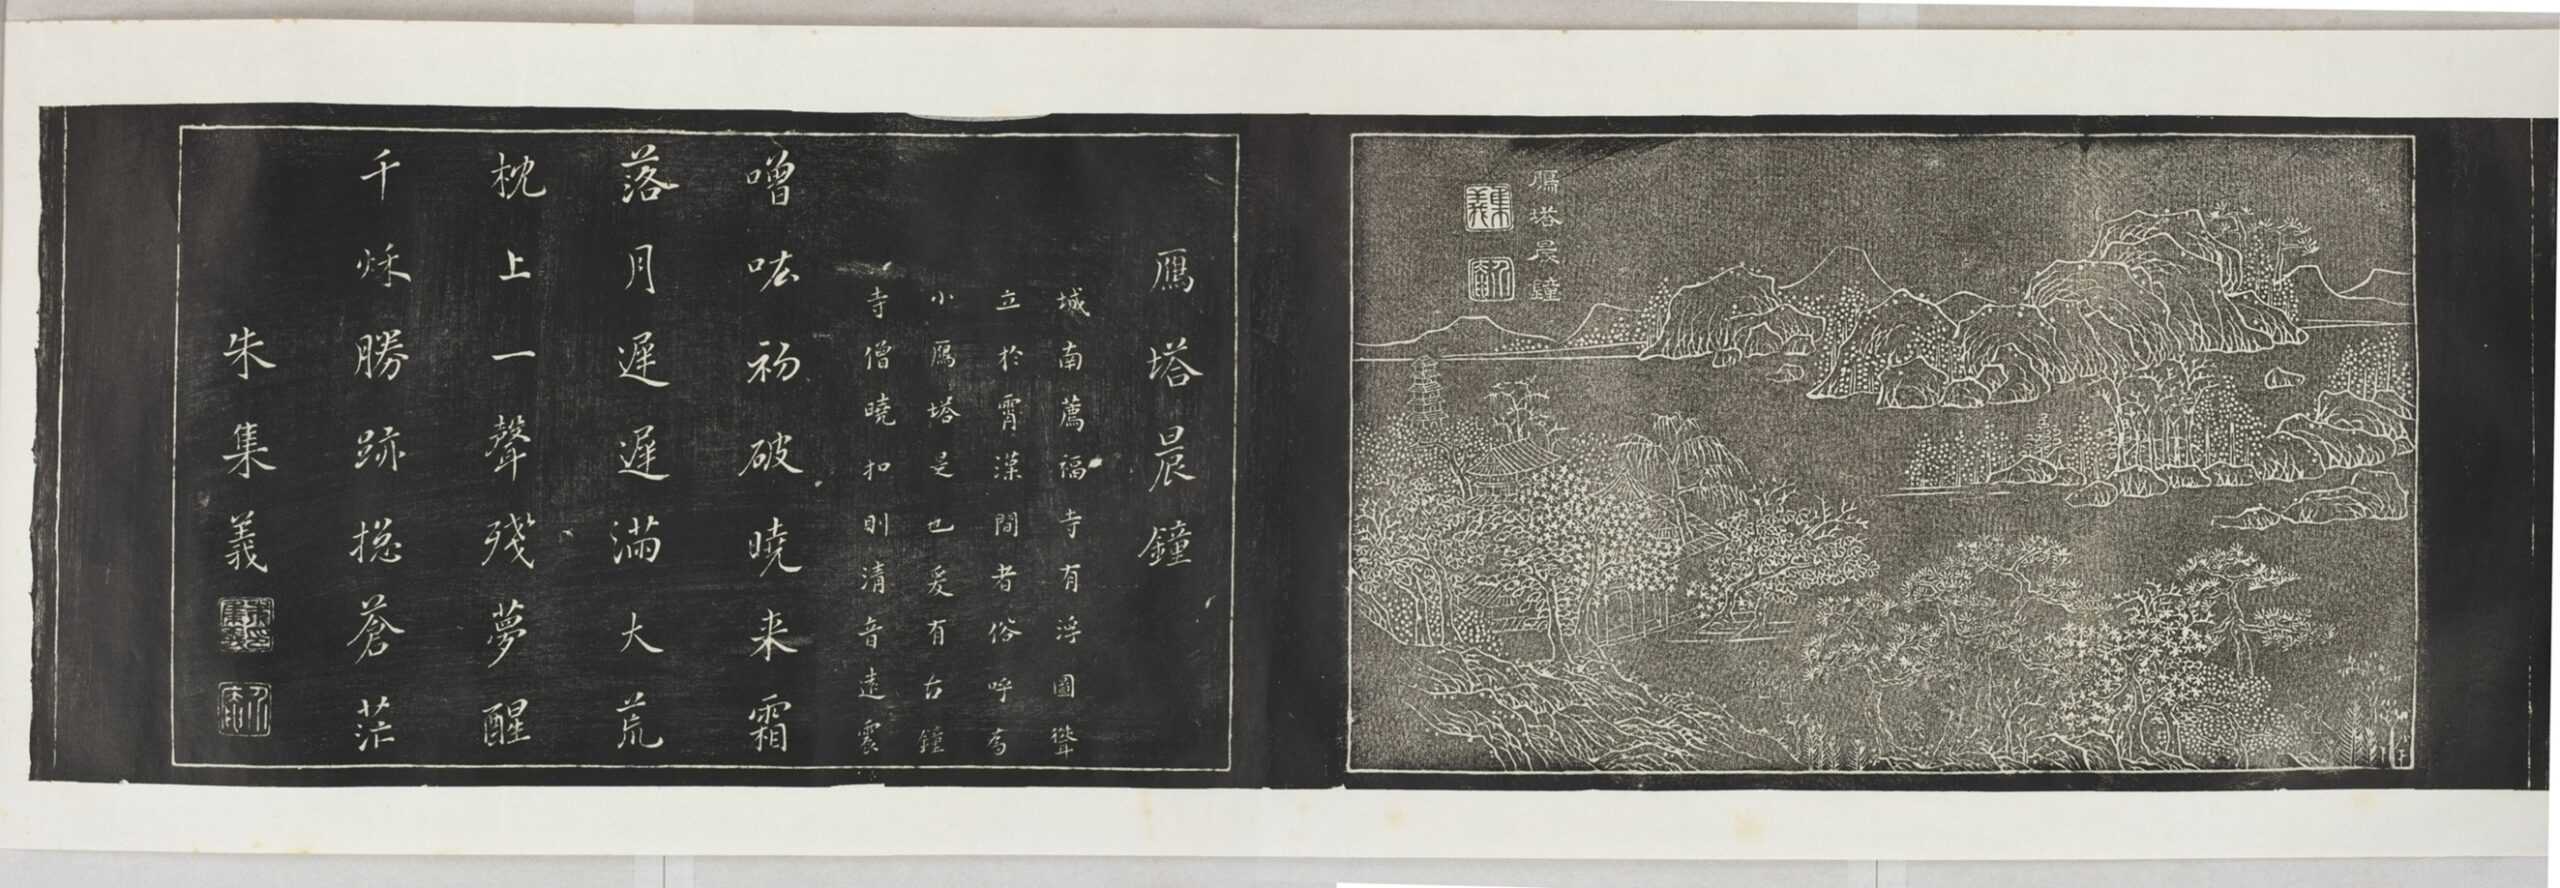 鴈塔晨鐘
集義
鴈塔晨鐘
城南薦福寺有浮圖聳
立於霄漢間者俗呼為
小鴈塔是也爰有古鐘
寺僧曉扣則清音遠震
噌吰初破曉来霜
落月遲遲滿大荒
枕上一聲殘夢醒
千秌勝跡搃蒼茫
朱集義